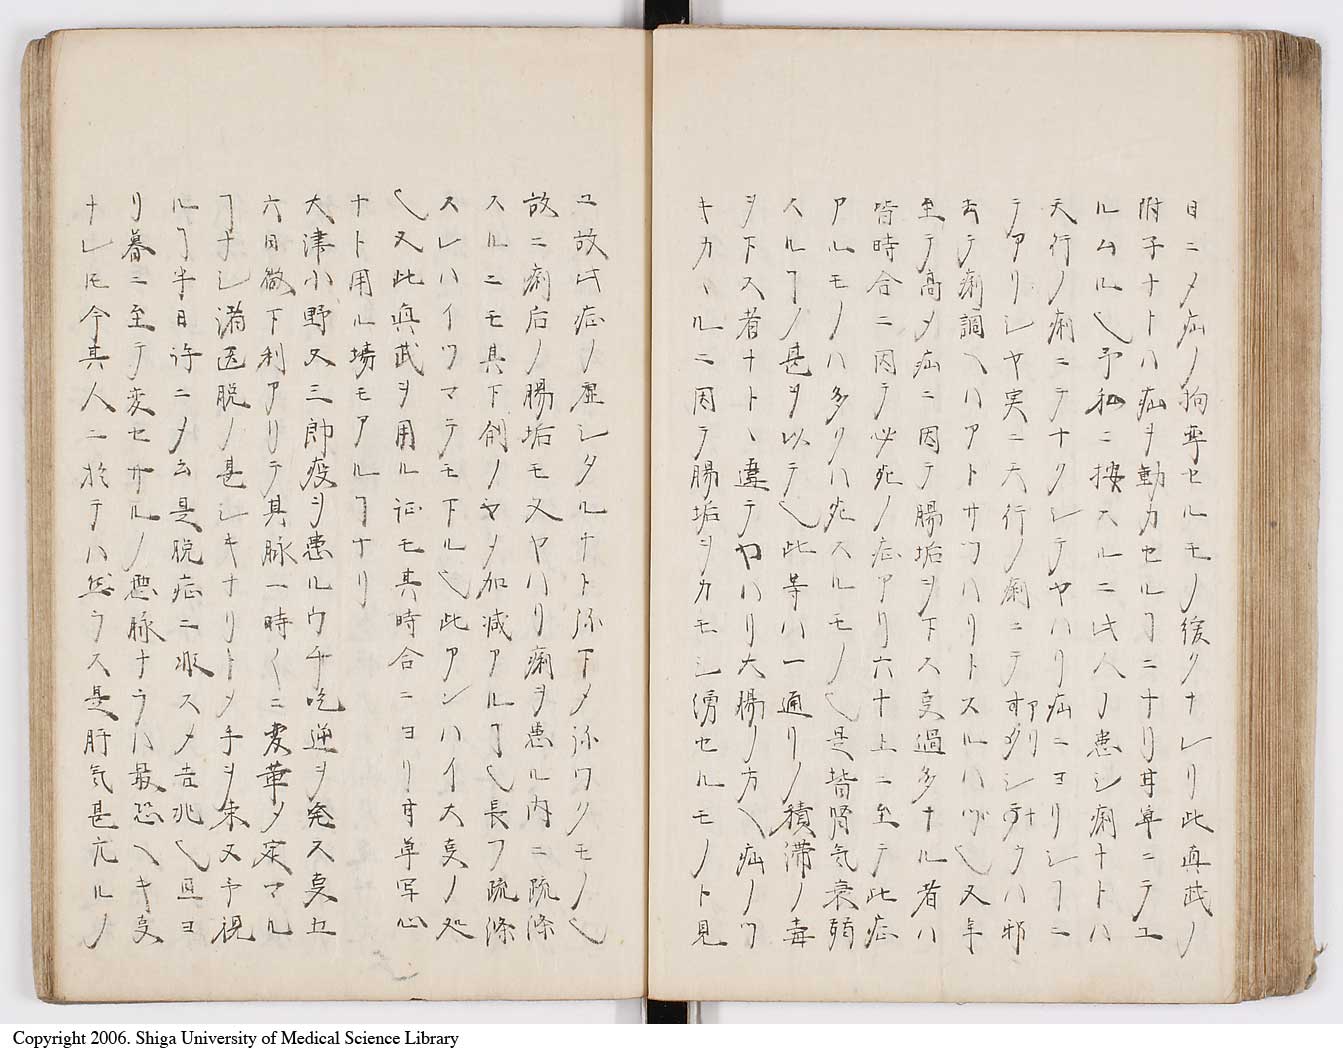 目ニ〆疝ノ拘牽セルモノ緩クナレリ此真武ノ
附子ナトハ疝ヲ動カセルヿニナリ甘草ニテユ
ルムル也予私ニ按スルニ此人ノ患シ痢ナトハ
天行ノ痢ニテナクシテヤハリ疝ニヨリシヿニ
テアリシヤ実ニ天行ノ痢ニテアリナハ邪
去テ痢調ヘハアトサツハリトスルハツ也又年
至テ高〆疝ニ因テ腸垢ヲ下ス夏過多ナル者ハ
皆時合ニ因テ必死ノ症アリ六十上ニ至テ此症
アルモノハ多クハ死スルモノ也是皆腎気衰弱
スルヿノ甚ヲ以テ也此等ハ一通リノ積滞ノ毒
ヲ下ス者ナトヽ違テヤハリ大腸ノ方ヘ疝ノツ
キカヽルニ因テ腸垢ヲカモシ湧セルモノト見
ユ故此症ノ虚シタルナト弥下〆弥ワクモノ也
故ニ痢后ノ腸垢モ又ヤハリ痢ヲ患ル内ニ疏滌
スルニモ其下剤ノヤ〆加減アルヿ也長フ疏滌
スレハイツマテモ下ル也此アンハイ大夏ノ処
也又此真武ヲ用ル証モ其時合ニヨリ甘草写心
ナト用ル場モアルヿナリ
大津小野又三郎疫ヲ患ルウチ吃逆ヲ発ス夏五
六日微下利アリテ其脉一時〱ニ変革〆定マル
ヿナシ満医脱ノ甚シキナリト〆手ヲ束又予視
ルヿ半日許ニ〆云是脱症ニ非ス〆吉兆也旦ヨ
リ暮ニ至テ変セサルノ悪脉ナラハ最恐ヘキ夏
ナレ𪜈今其人ニ於テハ然ラス是肝気甚亢ルノ
Copyright 2006. Shiga University of Medical Science Library